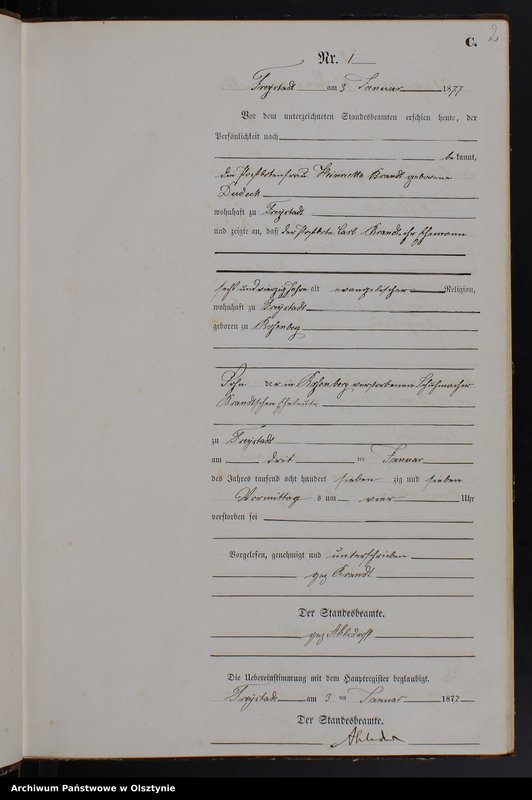 2
C.
Nr. 1
Freystadt am 3 Januar 1877
Vor dem unterzeichneten Standesbeamten erschien heute, der
Persönlichkeit nach
bekannt,
die Postbotenfrau Henriette Brandt geborene
Dudeck
wohnhaft zu Freystadt
und zeigte an, daß der Postbote Carl Brandt, ihr Ehemann
sechs und vierzig Jahre alt evangelischer Religion,
wohnhaft zu Freystadt
geboren zu Rosenberg
Sohn der in Rosenberg verstorbenen Schuhmacher
Brandtschen Eheleute
zu Freystadt
am dritten Januar
des Jahres tausend acht hundert siebenzig und sieben
Vormittags um vier Uhr
verstorben sei
Vorgelesen, genehmigt und unterschrieben
gez Brandt
Der Standesbeamte.
gez
Die Uebereinstimmung mit dem Hauptregister beglaubigt.
Freystadt am 3 ten Januar 1877
Der Standesbeamte.
Archiwum Państwowe w Olsztynie